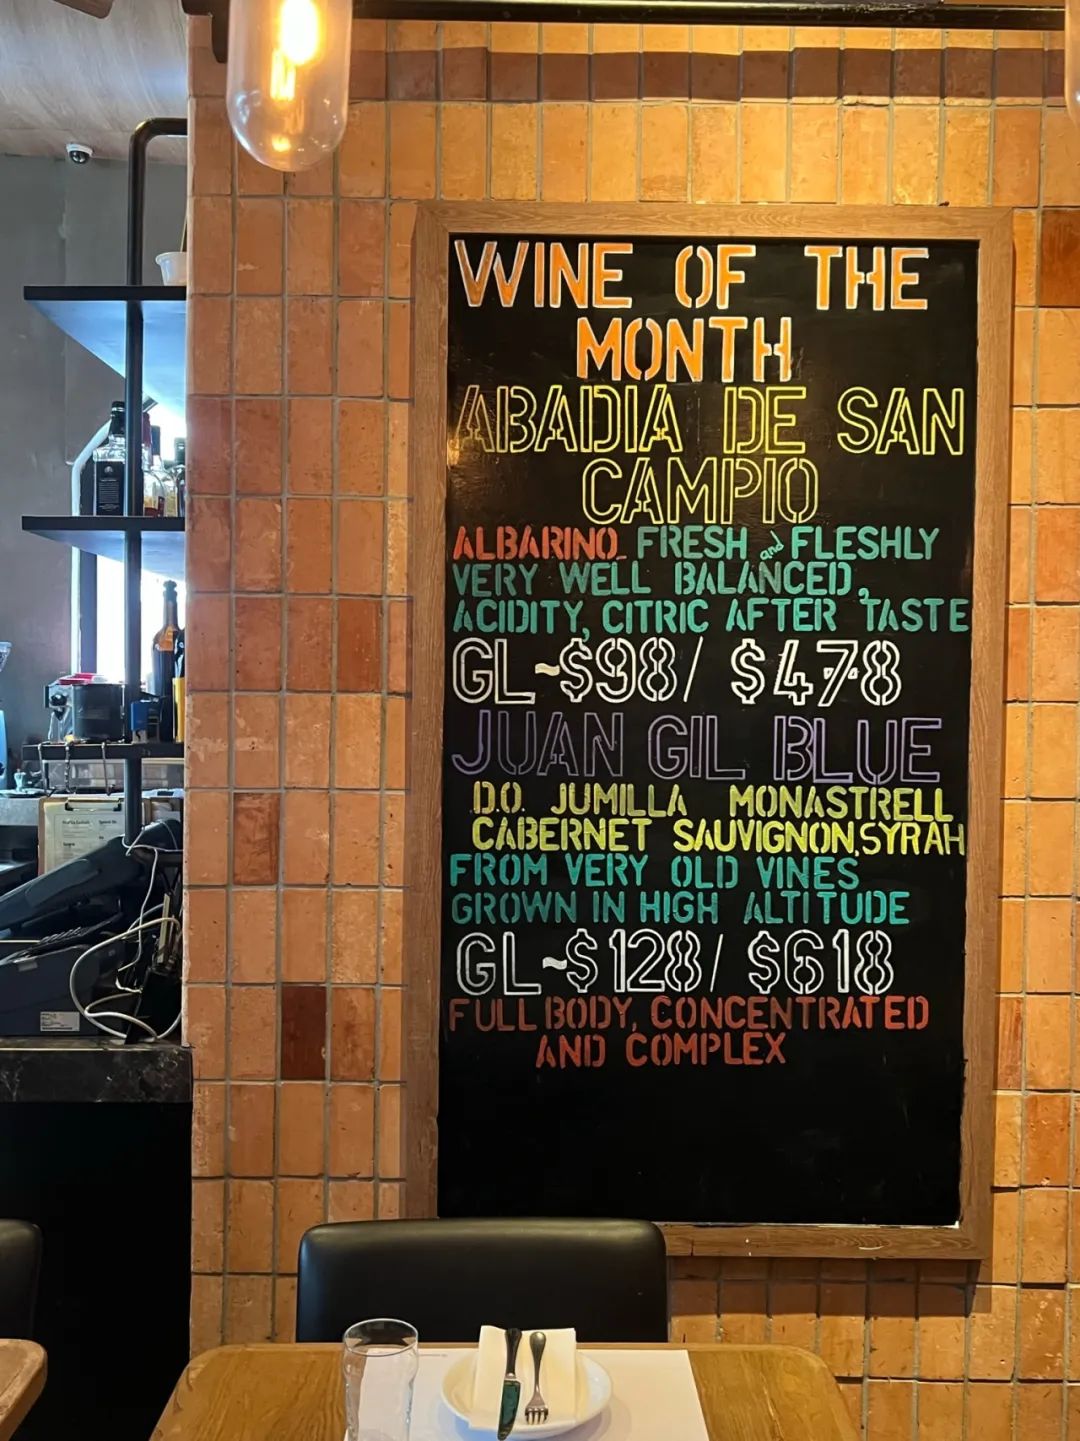 WINE OF THE
MONTH
ABADIA DE SAN
CAMPIO
ALBARINO FRESH and FLESHLY
VERY WELL BALANCED,
ACIDITY, CITRIC AFTER TASTE
GL~$98/ $478
JUAN GIL BLUE
D.O. JUMILLA MONASTRELL
CABERNET SAUVIGNON, SYRAH
FROM VERY OLD VINES
GROWN IN HIGH ALTITUDE
GL~$128/ $618
FULL BODY, CONCENTRATED
AND COMPLEX